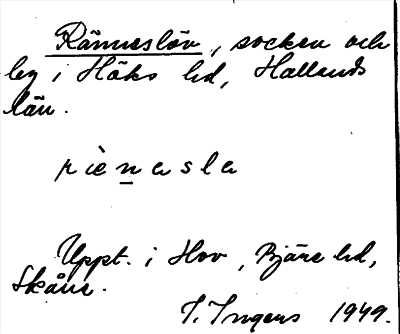 Ränneslöv, socken och
by i Höks hd, Hallands
län.
riènesla
Uppt. i Hov, Bjäre hd,
Skåne.
I. Ingers 1949.